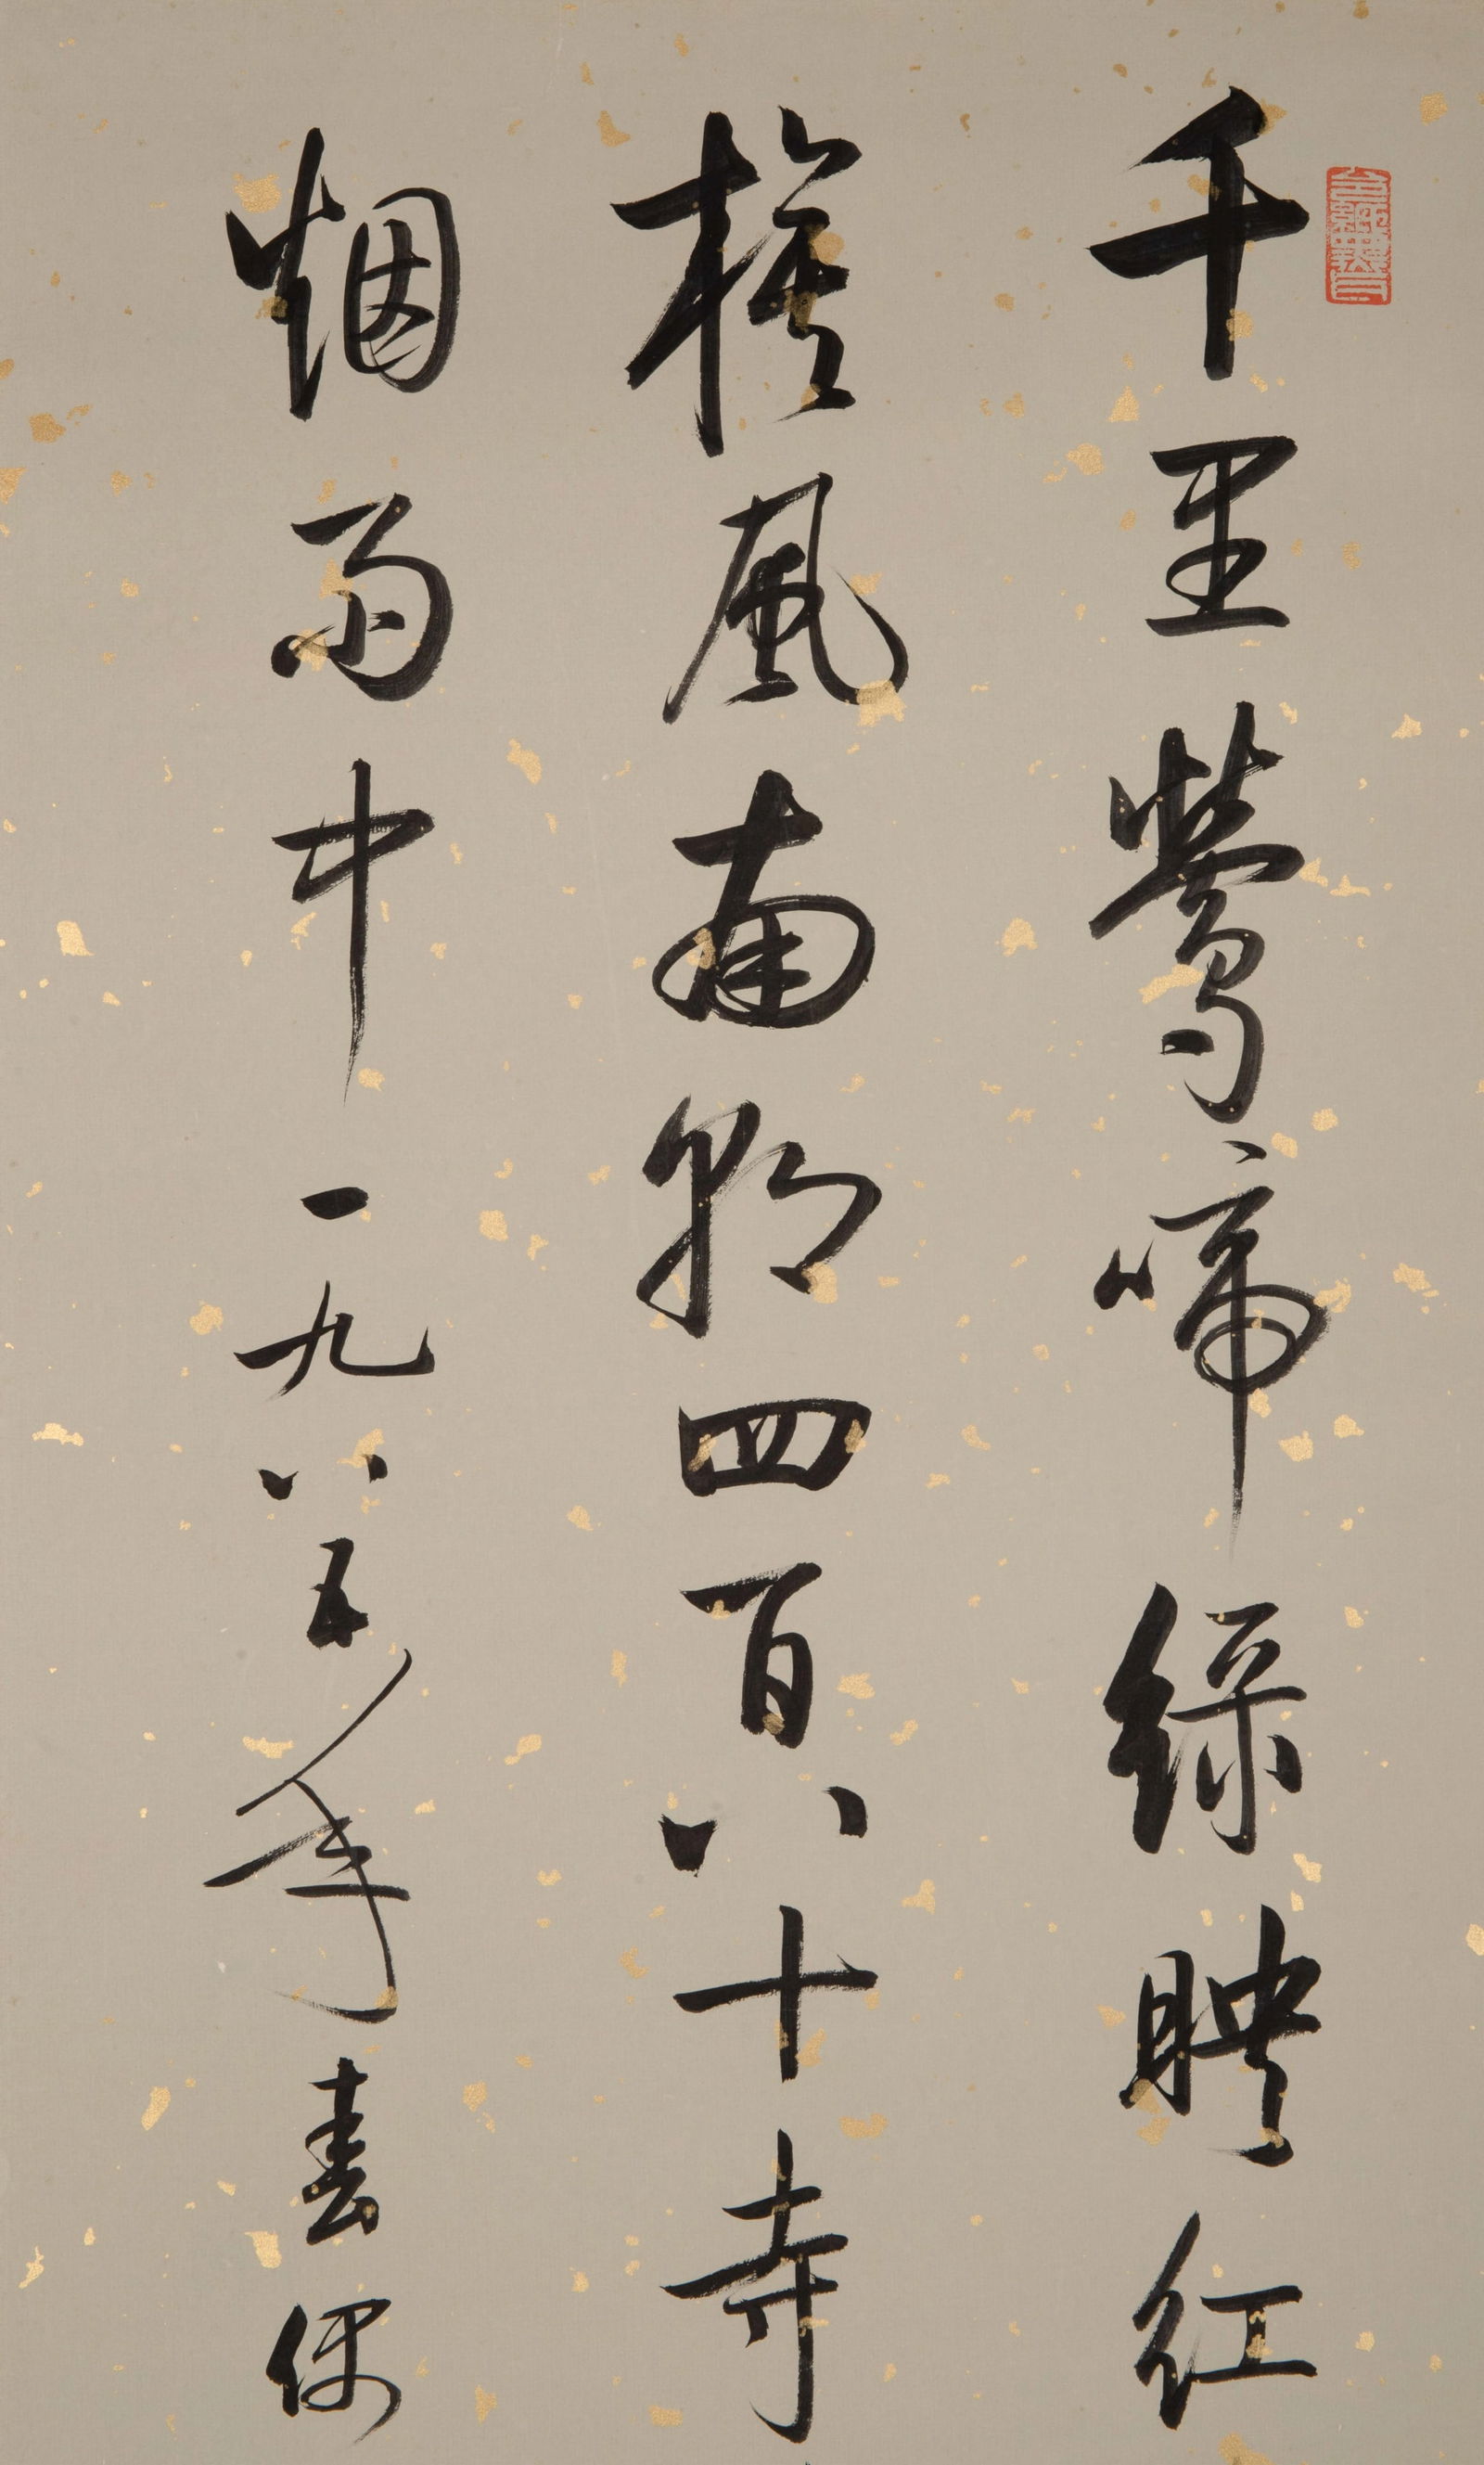 千里鶯啼綠映紅
旗風南朝四百八十寺
烟雨中一九八五年春偶